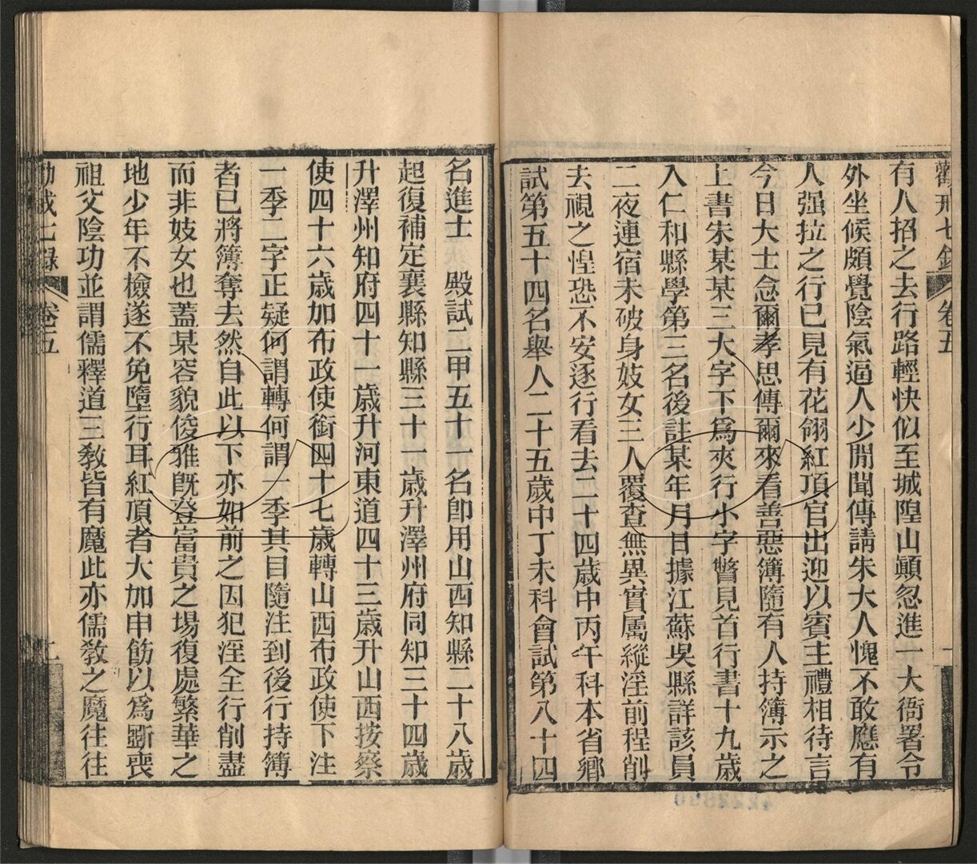 勸戒七錄 卷五
有人招之去行路輕快似至城隍山顚忽進一大衙署令
外坐候頗覺陰氣逼人少閒聞傳請朱大人愧不敢應有
人强拉之行已見有花翎紅頂官出迎以賓主禮相待言
今日大士念爾孝思傳爾來看善惡簿隨有人持簿示之
上書朱某某三大字下爲夾行小字瞥見首行書十九歲
入仁和縣學第三名後註某年月日據江蘇吳縣詳該員
二夜連宿未破身妓女三人覆查無異實屬縱淫前程削
去視之惶恐不安逐行看去二十四歲中丙午科本省鄉
試第五十四名舉人二十五歲中丁未科會試第八十四
名進士 殿試二甲五十一名卽用山西知縣二十八歲
起復補定襄縣知縣三十一歲升澤州府同知三十四歲
升澤州知府四十一歲升河東道四十三歲升山西按察
使四十六歲加布政使銜四十七歲轉山西布政使下注
一季二字正疑何謂轉何謂一季其目隨注到後行持簿
者已將簿奪去然自此以下亦如前之因犯淫全行削盡
而非妓女也蓋某容貌俊雅旣登富貴之場復處繁華之
地少年不檢遂不免墮行耳紅頂者大加申飭以爲斲喪
祖父陰功並謂儒釋道三敎皆有魔此亦儒敎之魔往往
勸戒七錄 卷五